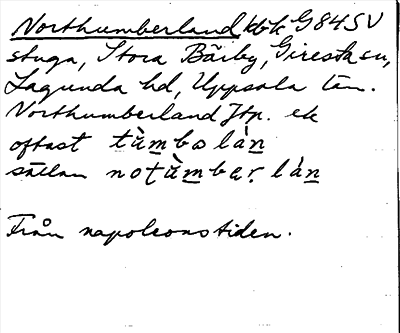 Northumberland kbk G84SV
stuga, Stora Bärby, Giresta sn,
Lagunda hd, Uppsala län.
Northumberland Jfp. ek
oftast tùmbolàn
sällan notùmbər làn
Från napoleonstiden.